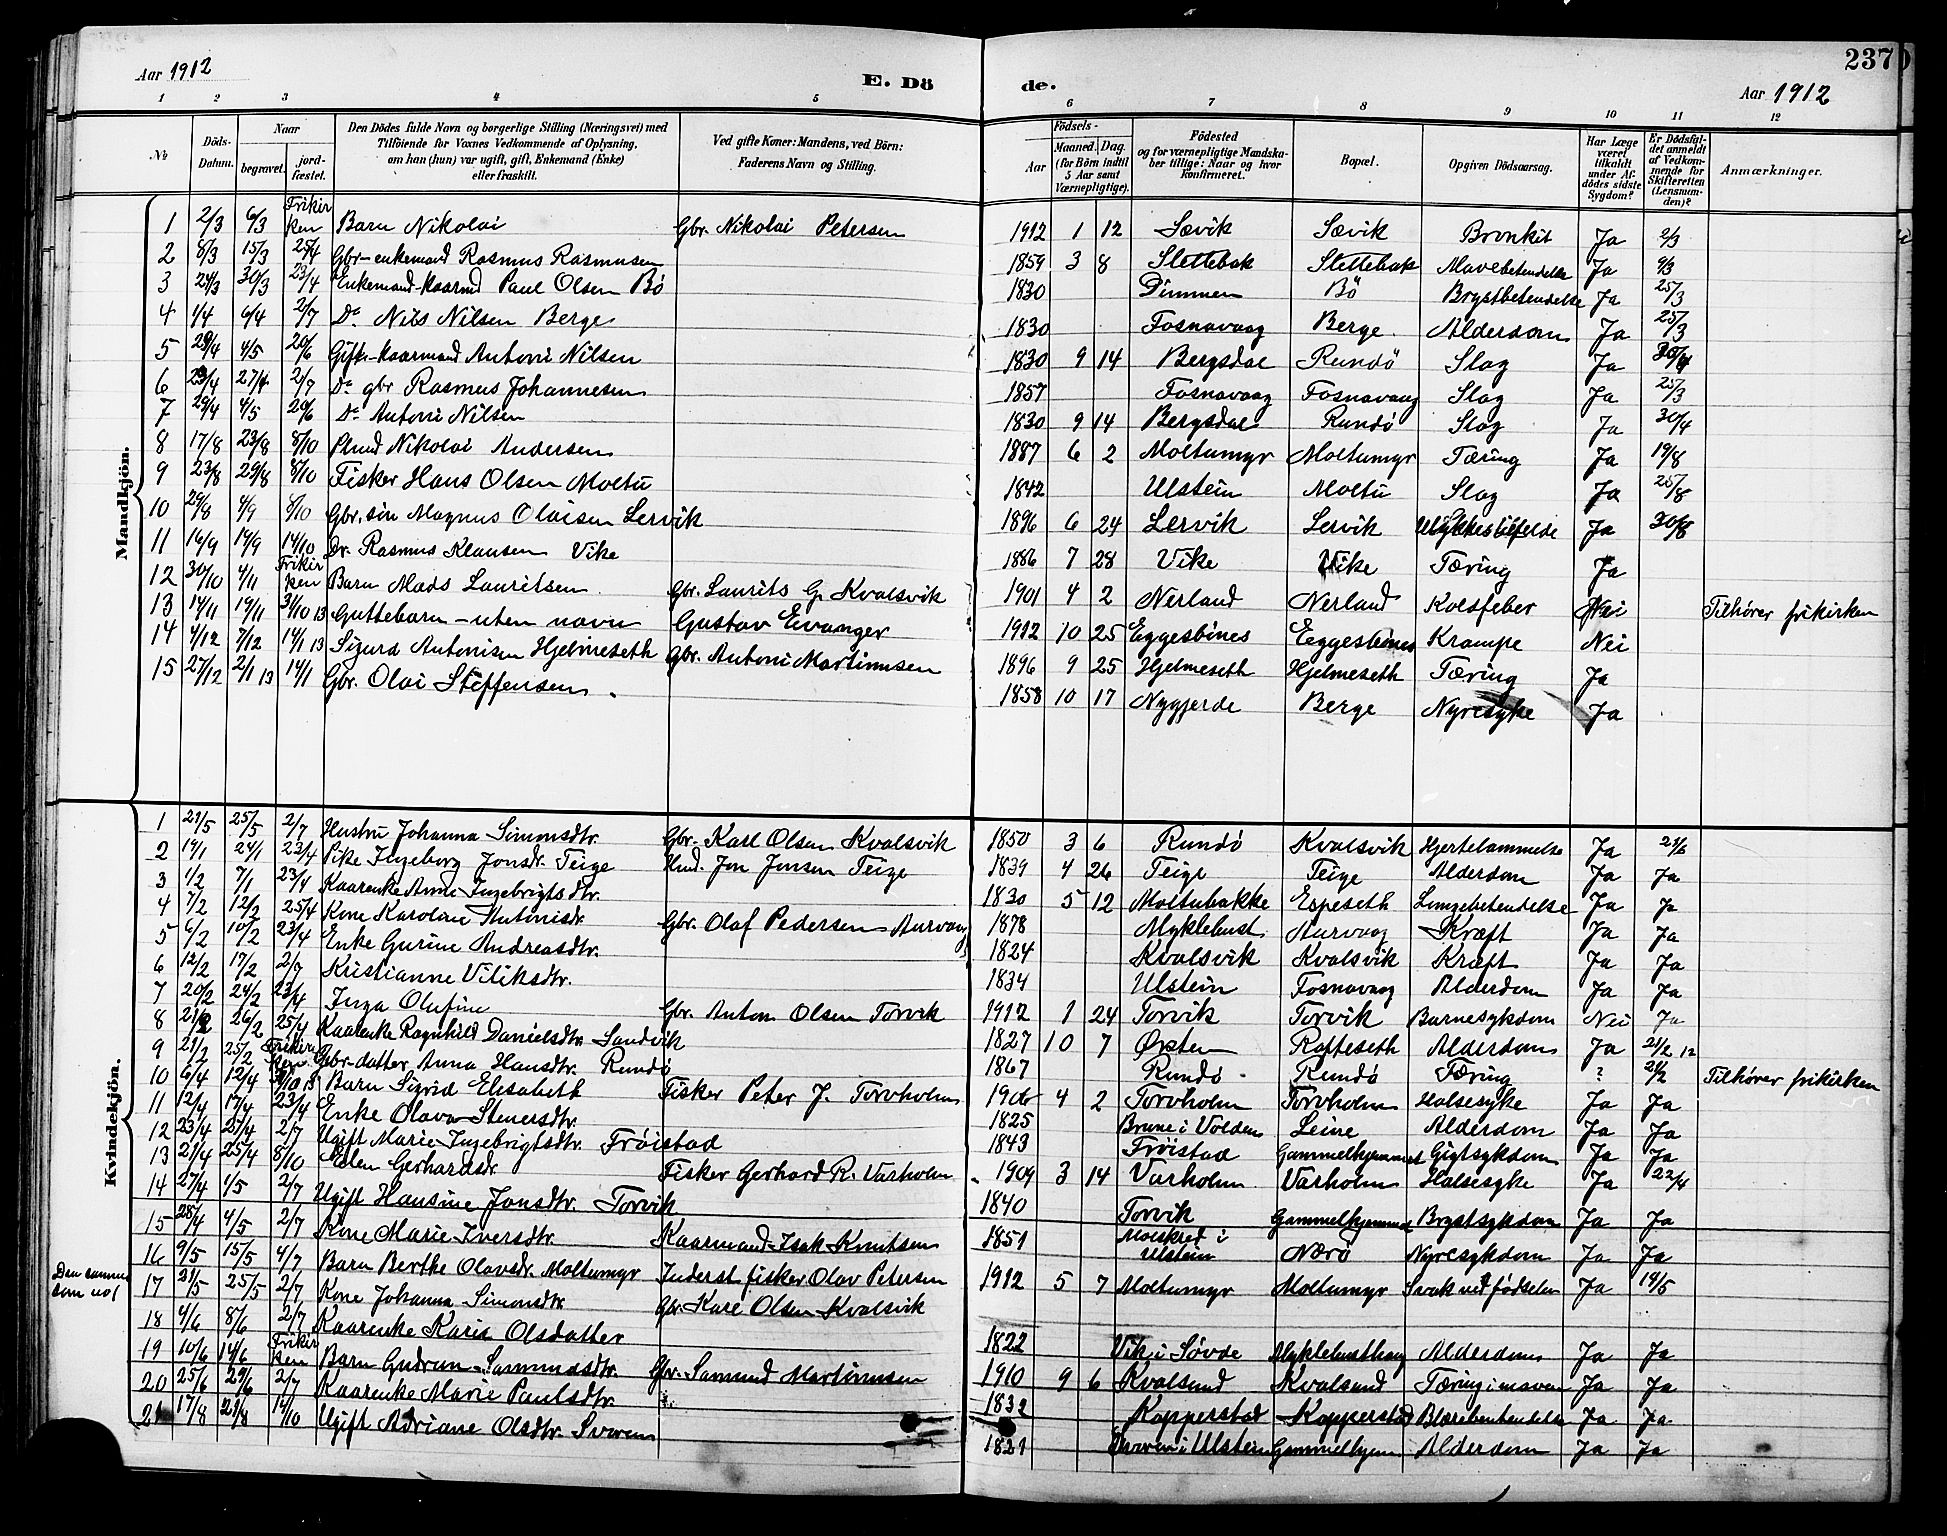 Aar 1912
E. Dö
de.
Aar 1912
237
1 2 3 4 5 6 7 8 9 10 11 12
№ Döds-Datum. Naar begravet. jord-fæstet. Den Dödes fulde Navn og borgerlige Stilling (Næringsvei) med Tilföiende for Voxnes Vedkommende af Oplysning, om han (hun) var ugift, gift, Enkemand (Enke) eller fraskilt. Ved gifte Koner: Mandens, ved Börn: Faderens Navn og Stilling. Födsels- Aar Maaned. Dag. (for Börn indtil 5 Aar samt Værnepligtige). Födested og for værnepligtige Mandskaber tillige: Naar og hvor konfirmeret. Bopæl. Opgiven Dödsaarsag. Har Læge været tilkaldt under Afdödes sidste Sygdom? Er Dödsfaldet anmeldt af Vedkommende for Skifteretten (Lensmanden)? Anmærkninger.
Mandkjön.
1 2/3 6/3 Frikirken Barn Nikolai Gbr. Nikolai Petersen 1912 1 12 Sævik Sævik Bronkit Ja 2/3
2 8/3 15/3 25/4 Gbr-enkemand Rasmus Rasmusen 1859 3 8 Slettebak Slettebak Mavebetendelse Ja 9/3
3 24/3 30/3 23/4 Enkemand-kaarmd Paul Olsen Bø 1830 Dimmen Bö Brystbetendelse Ja 25/3
4 1/4 6/4 2/7 Do Nils Nilsen Berge 1830 Fosnavaag Berge Alderdom Ja 25/3
5 29/4 4/5 20/6 Gift-kaarmand Antoni Nilsen 1830 9 14 Bergsdal Rundö Slag Ja
6 23/4 27/4 2/7 Do gbr Rasmus Johannesen 1857 Fosnavaag Fosnavaag Slag Ja 25/3
7 29/4 4/5 20/6 Do Antoni Nilsen 1830 9 14 Bergsdal Rundö Slag Ja 30/4
8 17/8 23/8 8/10 Nikolai Andersen 1887 6 2 Moltumyr Moltumyr Tæring Ja 19/8
9 23/8 29/8 8/10 Fisker Hans Olsen Moltu 1842 Ulstein Moltu Slag Ja 25/8
10 29/8 4/9 8/10 Gbr. sön Magnus Olaisen Lervik 1896 6 24 Lervik Lervik Ulykkestilfelde Ja 30/8
11 16/9 19/9 14/10 Do. Rasmus Klausen Vike 1886 7 28 Vike Vike Tæring Ja
12 30/10 4/11 Frikirken Barn Mads Lauritsen Gbr. Laurits G. Kvalsvik 1901 4 2 Nerland Nerland Koldfeber Nei Tilhører frikirken
13 14/11 19/11 31/10 13 Guttebarn - uten navn Gustav Evanger 1912 10 25 Eggesbönes Eggesbönes Krampe Nei
14 4/12 7/12 14/1 13 Sigurd Antonisen Hjelmeseth Gbr. Antoni Martinusen 1896 9 25 Hjelmeseth Hjelmeseth Tæring Ja
15 27/12 2/1 13 14/1 Gbr. Olai Steffensen 1858 10 17 Nygjerde Berge Nyresyke Ja
Kvindekjön.
1 21/5 25/5 2/7 Hustru Johanna Simonsdtr. Gbr. Karl Olsen Kvalsvik 1850 3 6 Rundö Kvalsvik Hjertelammelse Ja 21/6
2 19/1 24/1 23/4 Pike Ingeborg Jonsdr. Teige Husd. Jon Jonsen Teige 1839 4 26 Teige Teige Alderdom Ja Ja
3 1/2 7/1 23/4 Kaarenke Anne Ingebrigtsdtr. 1830 5 12 Moltubakke Espeseth Lungebetendelse Ja Ja
4 7/2 12/2 25/4 Kone Karoline Antonisdr. Gbr. Olaf Pedersen Aurvaag 1878 Myklebust Aurvaag Kræft Ja Ja
5 6/2 10/2 23/4 Enke Gurine Andreasdtr. 1824 Kvalsvik Kvalsvik Kræft Ja Ja
6 12/2 17/2 2/7 Kristianne Viliksdtr. 1834 Ulstein Fosnavaag Alderdom Ja Ja
7 20/2 24/2 23/4 Inga Olufine Gbr. Anton Olsen Torvik 1912 1 24 Torvik Torvik Barnesykdom Nei Ja
8 21/2 26/2 25/4 Kaarenke Ragnhild Danielsdtr. Sandvik 1827 10 7 Ørsten Rafteseth Alderdom Ja 21/2 12
9 21/2 25/2 Frikirken Gbr-datter Anna Hansdtr. Rundö 1867 Rundö Rundö Tæring ? 24/2 Tilhører frikirken
10 6/4 12/4 31/10 13 Barn Sigrid Elisabeth Fisker Peter J. Torvholm 1906 4 2 Torvholm Torvholm Halsesyke Ja Ja
11 12/4 17/4 23/4 Enke Olava Stenersdtr. 1825 Brune i Volden Leine Alderdom Ja Ja
12 23/4 27/4 2/7 Ugift Marie Ingebrigtsdtr. Fröistad 1843 Fröistad Gammelhjemmet Gigtsykdom Ja Ja
13 21/4 25/4 8/10 Elen Gerhardsdr. Fisker Gerhard R. Varholm 1909 3 14 Varholm Varholm Halsesyke Ja 22/4
14 27/4 1/5 2/7 Ugift Hansine Jonsdtr. Torvik 1840 Torvik Gammelhjemmet Brystsykdom Ja Ja
15 28/4 4/5 2/7 Kone Marie Iversdtr. Kaarmand Isak Knutsen 1851 Moiskred i Ulstein Nærö Nyresykdom Ja Ja
16 9/5 15/5 4/7 Barn Berthe Olavsdr. Moltumyr Inderst fisker Olav Petersen 1912 5 7 Moltumyr Moltumyr Svak ved födselen Ja 19/5
Den samme som no 1
17 21/5 25/5 2/7 Kone Johanna Simonsdtr Gbr. Karl Olsen Kvalsvik
18 4/6 8/6 2/7 Kaarenke Karie Olsdatter 1822 Vik i Sövde Myklebusthaug Alderdom Ja Ja
19 10/6 14/6 Frikirken Barn Gudrun Samundsdtr. Gbr. Samund Martinusen 1910 9 6 Kvalsund Kvalsund Tæring i maven Ja Ja
20 25/6 29/6 2/7 Kaarenke Marie Paulsdtr. 1832 Kopperstad Kopperstad Blærebetendelse Ja Ja
21 17/8 21/8 14/10 Ugift Adriane Olsdtr. Svoren 1821 Svoren i Ulstein Gammelhjem Alderdom Ja Ja